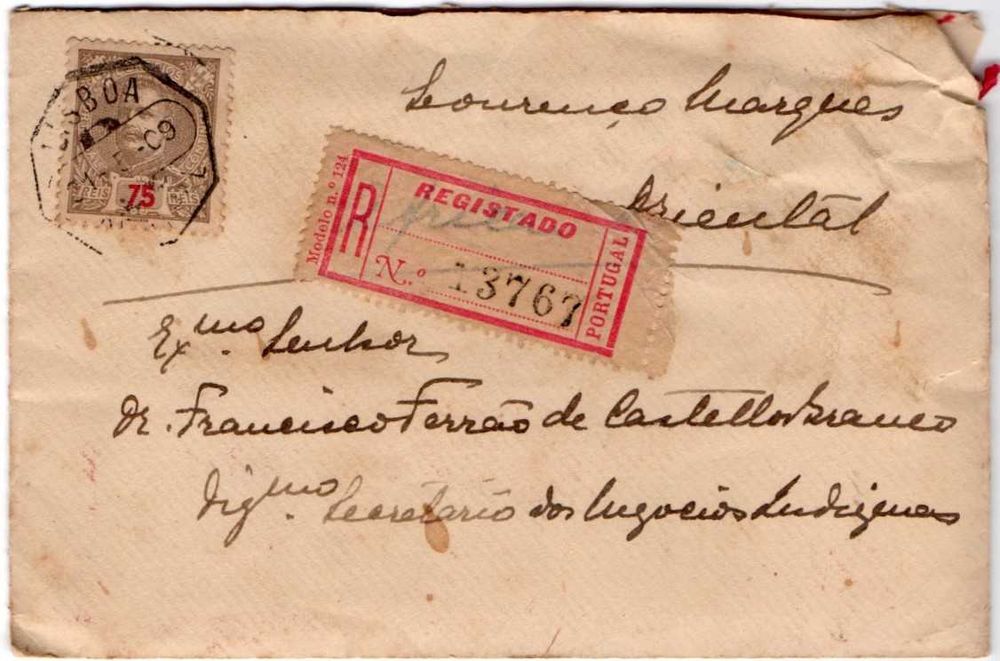 LISBOA
-09
REIS 75 REIS
Lourenço Marques
Oriental
Modelo n.º 124
R
REGISTADO
N.º 13767
PORTUGAL
Ex.mo Senhor
Dr. Francisco Ferrão de Castello Branco
Dig.mo Secretário dos Negocios Indigenas